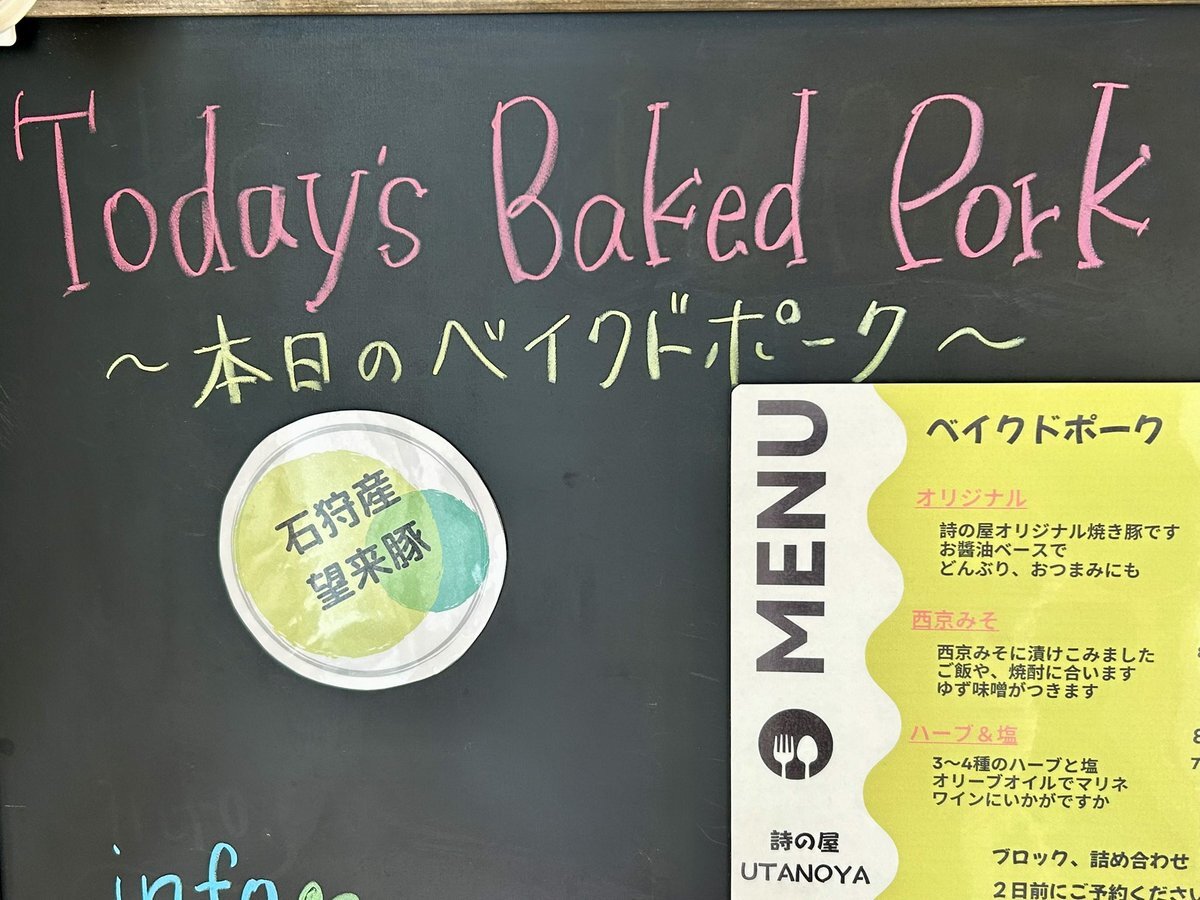 Today's Baked Pork
～本日のベイクドポーク～
石狩産
望来豚
MENU
詩の屋
UTANOYA
ベイクドポーク
オリジナル
詩の屋オリジナル焼き豚です
お醤油ベースで
どんぶり、おつまみにも
西京みそ
西京みそに漬けこみました
ご飯や、焼酎に合います
ゆず味噌がつきます
ハーブ＆塩
3〜4種のハーブと塩
オリーブオイルでマリネ
ワインにいかがですか
ブロック、詰め合わせ
２日前にご予約ください
info